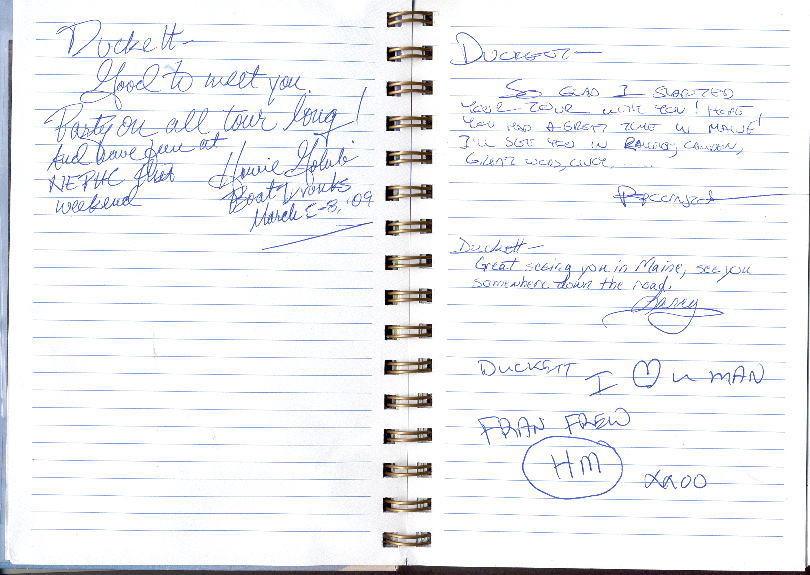 Duckett-
Good to meet you.
Party on all tour long!
And have fun at
NEPHC
weekend
Howie
Boat Drunks
March 5-8, '09
DUCKETT-
SO GLAD I STARTED
YOUR TOUR WITH YOU! HOPE
YOU HAD A GREAT TIME IN MAINE!
I'LL SEE YOU IN RALEIGH, CAMDEN,
GREAT WOODS,
Duckett-
Great seeing you in Maine, see you
somewhere down the road.
DUCKETT I ♡ U MAN
FRAN FREW
HM
XXOO